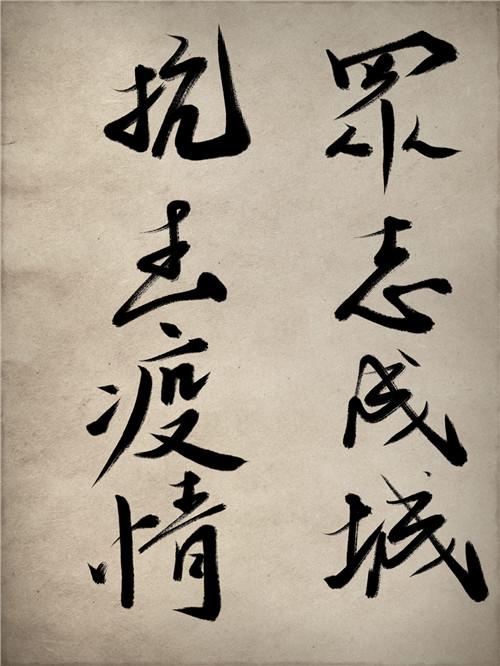 眾志成城
抗击疫情